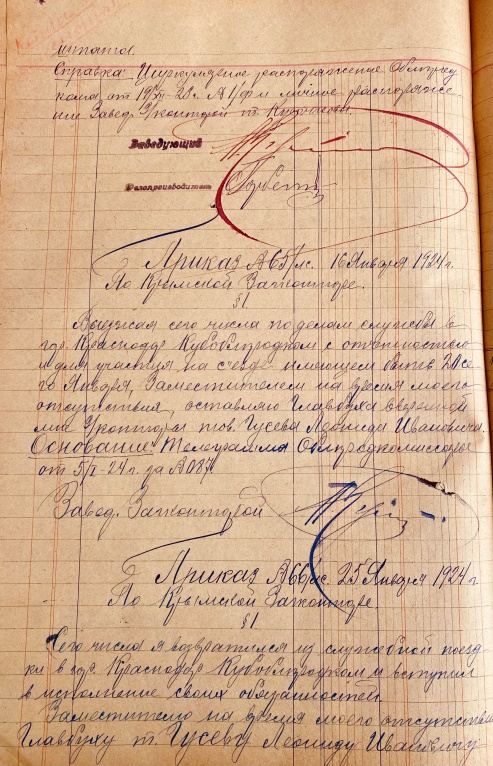 штатом.
Справка: Циркулярное распоряжение Облпрод
кома от 19/XII-23 г. и личное распоряже
ние Завед. З/конторой т.
Заведующий
Делопроизводитель
Приказ №65/лс. 16 Января 1924 г.
По Крымской Загконторе.
§1
Выезжая сего числа по делам службы в
гор. Краснодар Кубоблпродком с отчетностью
и для участия на съезде имеющем быть 20 се
го Января, Заместителем на время моего
отсутствия, оставляю Главбуха вверенной
мне З/конторы тов. Гусева Леонида Ивановича.
Основание: Телеграмма Облпродкомиссара
от 5/I-24 г. за №087.
Завед. Загконторой
Приказ №66/лс. 25 Января 1924 г
По Крымской Загконторе
§1
Сего числа я возвратился из служебной поезд
ки в гор. Краснодар Кубоблпродком и вступил
в исполнение своих обязанностей.
Заместителю на время моего отсутствия
Главбуху т. Гусеву Леониду Ивановичу